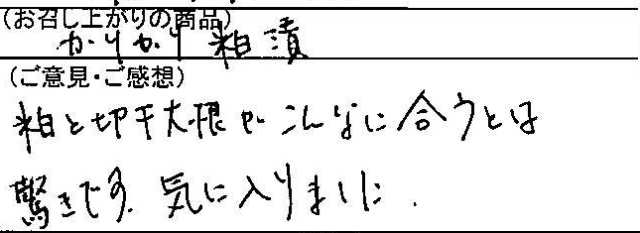 (お召し上がりの商品)
かりかり 粕漬
(ご意見・ご感想)
粕と切干大根がこんなに合うとは
驚きです. 気に入りました.